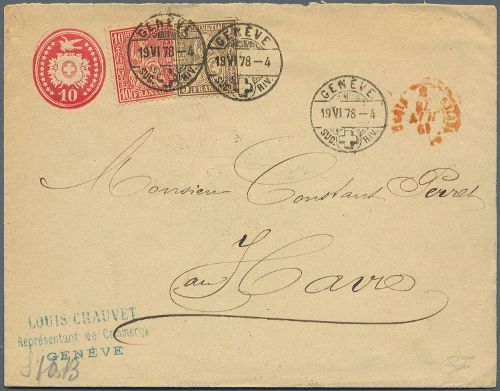 10
10
10
FRANCO
GENÈVE
19 VI 78 – 4
SUC. RIV.
GENÈVE
19 VI 78 – 4
SUC. RIV.
GENÈVE
19 VI 78 – 4
SUC. RIV.
Monsieur Constant Perret
au Havre
LOUIS CHAUVET
Représentant de Commerce
GENÈVE